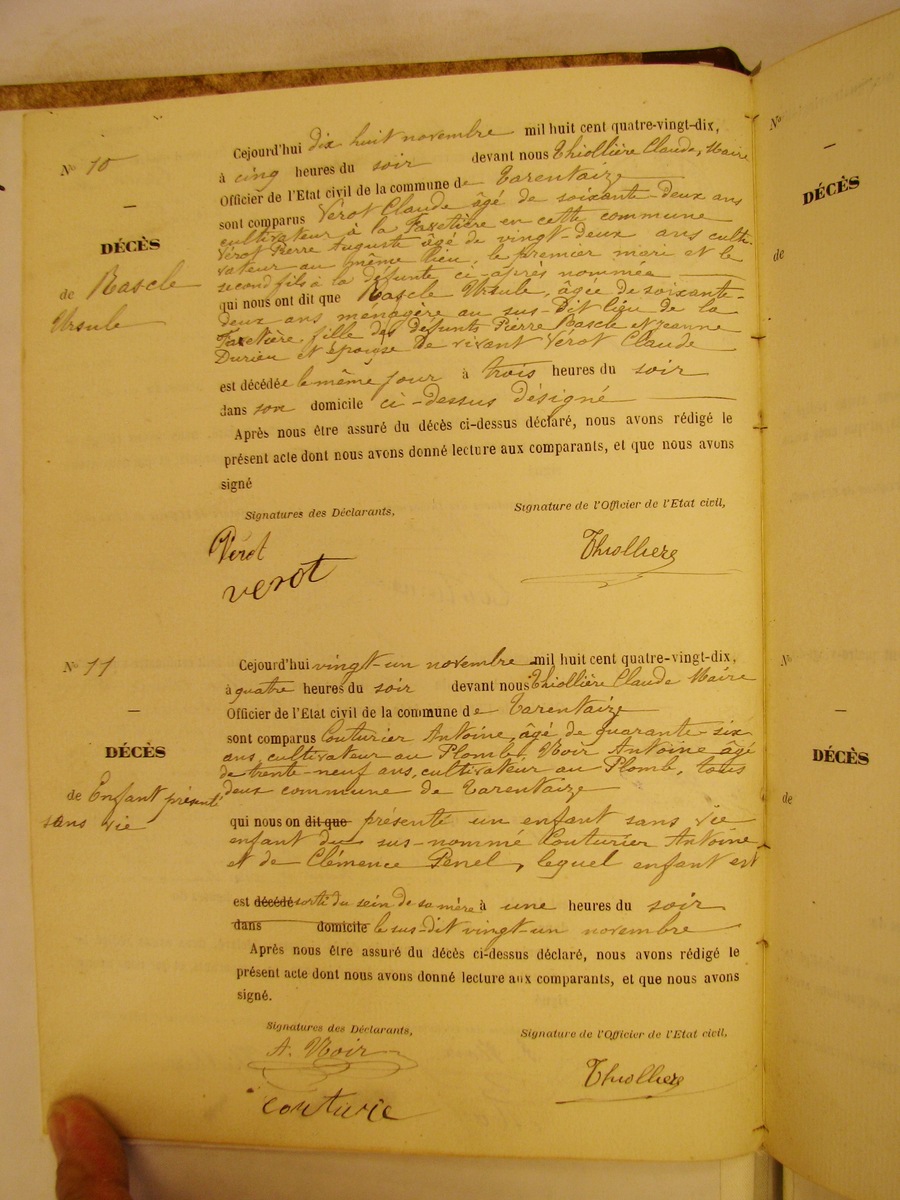 N° 10
DÉCÈS
de Rascle
Ursule
Cejourd'hui dix huit novembre mil huit cent quatre-vingt-dix,
à cinq heures du soir devant nous Thiollière Claude, Maire
Officier de l'Etat civil de la commune de Tarentaize
sont comparus Verot Claude âgé de soixante-deux ans
cultivateur à la Faxetière en cette commune
Verot Pierre Auguste âgé de vingt-deux ans culti-
vateur au même lieu, le premier mari et le
second fils à la défunte ci-après nommée
qui nous ont dit que Rascle Ursule, âgée de soixante-
deux ans ménagère au sus-dit lieu de la
Faxetière fille des défunts Pierre Rascle et Jeanne
Durieu et épouse de vivant Vérot Claude
est décédée le même jour à trois heures du soir
dans son domicile ci-dessus désigné
Après nous être assuré du décès ci-dessus déclaré, nous avons rédigé le
présent acte dont nous avons donné lecture aux comparants, et que nous avons
signé
Signatures des Déclarants,
Signature de l'Officier de l'Etat civil,
Vérot
verot
Thiolliere
N° 11
DÉCÈS
de Enfant présenté
sans vie
Cejourd'hui vingt-un novembre mil huit cent quatre-vingt-dix,
à quatre heures du soir devant nous Thiollière Claude Maire
Officier de l'Etat civil de la commune de Tarentaize
sont comparus Couturier Antoine, âgé de quarante-six
ans, cultivateur au Plomb, Noir Antoine âgé
de trente-neuf ans, cultivateur au Plomb, tous
deux commune de Tarentaize
qui nous on dit que présenté un enfant sans vie
enfant du sus-nommé Couturier Antoine
et de Clémence Penel, lequel enfant est
est décédé sorti du sein de sa mère à une heures du soir
dans domicile le sus-dit vingt-un novembre
Après nous être assuré du décès ci-dessus déclaré, nous avons rédigé le
présent acte dont nous avons donné lecture aux comparants, et que nous avons
signé.
Signatures des Déclarants,
Signature de l'Officier de l'Etat civil,
A. Noir
couturie
Thiolliere
N°
DÉCÈS
de
N°
DÉCÈS
de